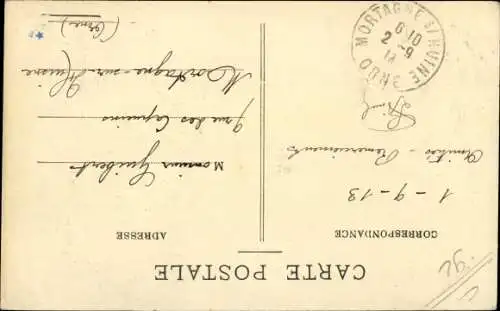 CARTE POSTALE
CORRESPONDANCE
1 - 9 - 13
Amitiés - Remerciements
ADRESSE
Monsieur Guibert
7 rue des Capucins
Mortagne-sur-Huisne
(Orne)
MORTAGNE S/ HUINE
6 10
2 - 9
13
ORNE